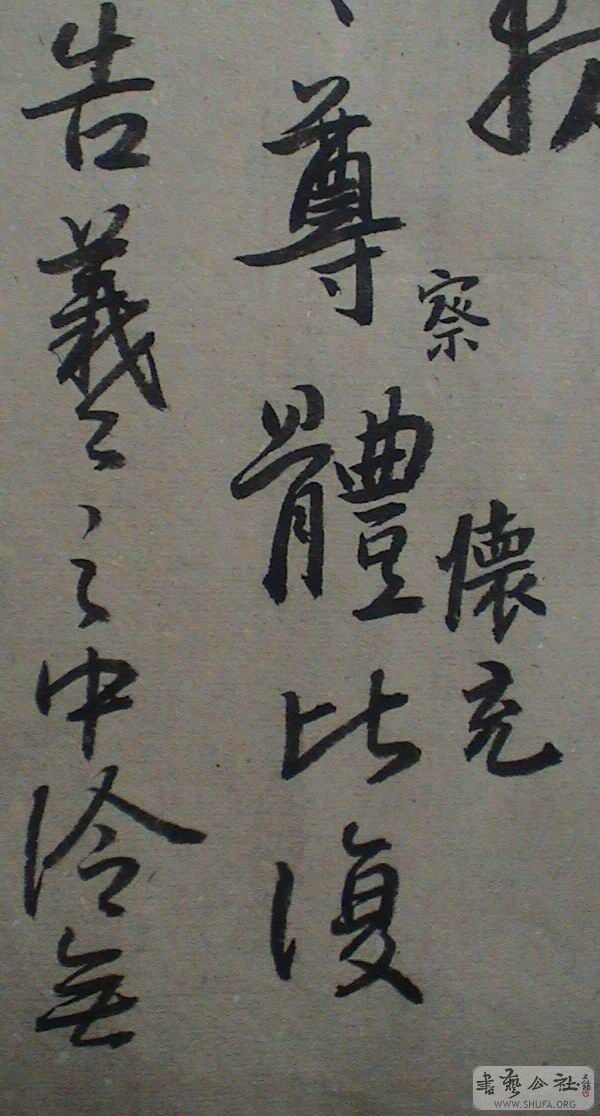 察
懷充
尊體比復
告羲之中冷無
書藝公社
WWW.SHUFA.ORG